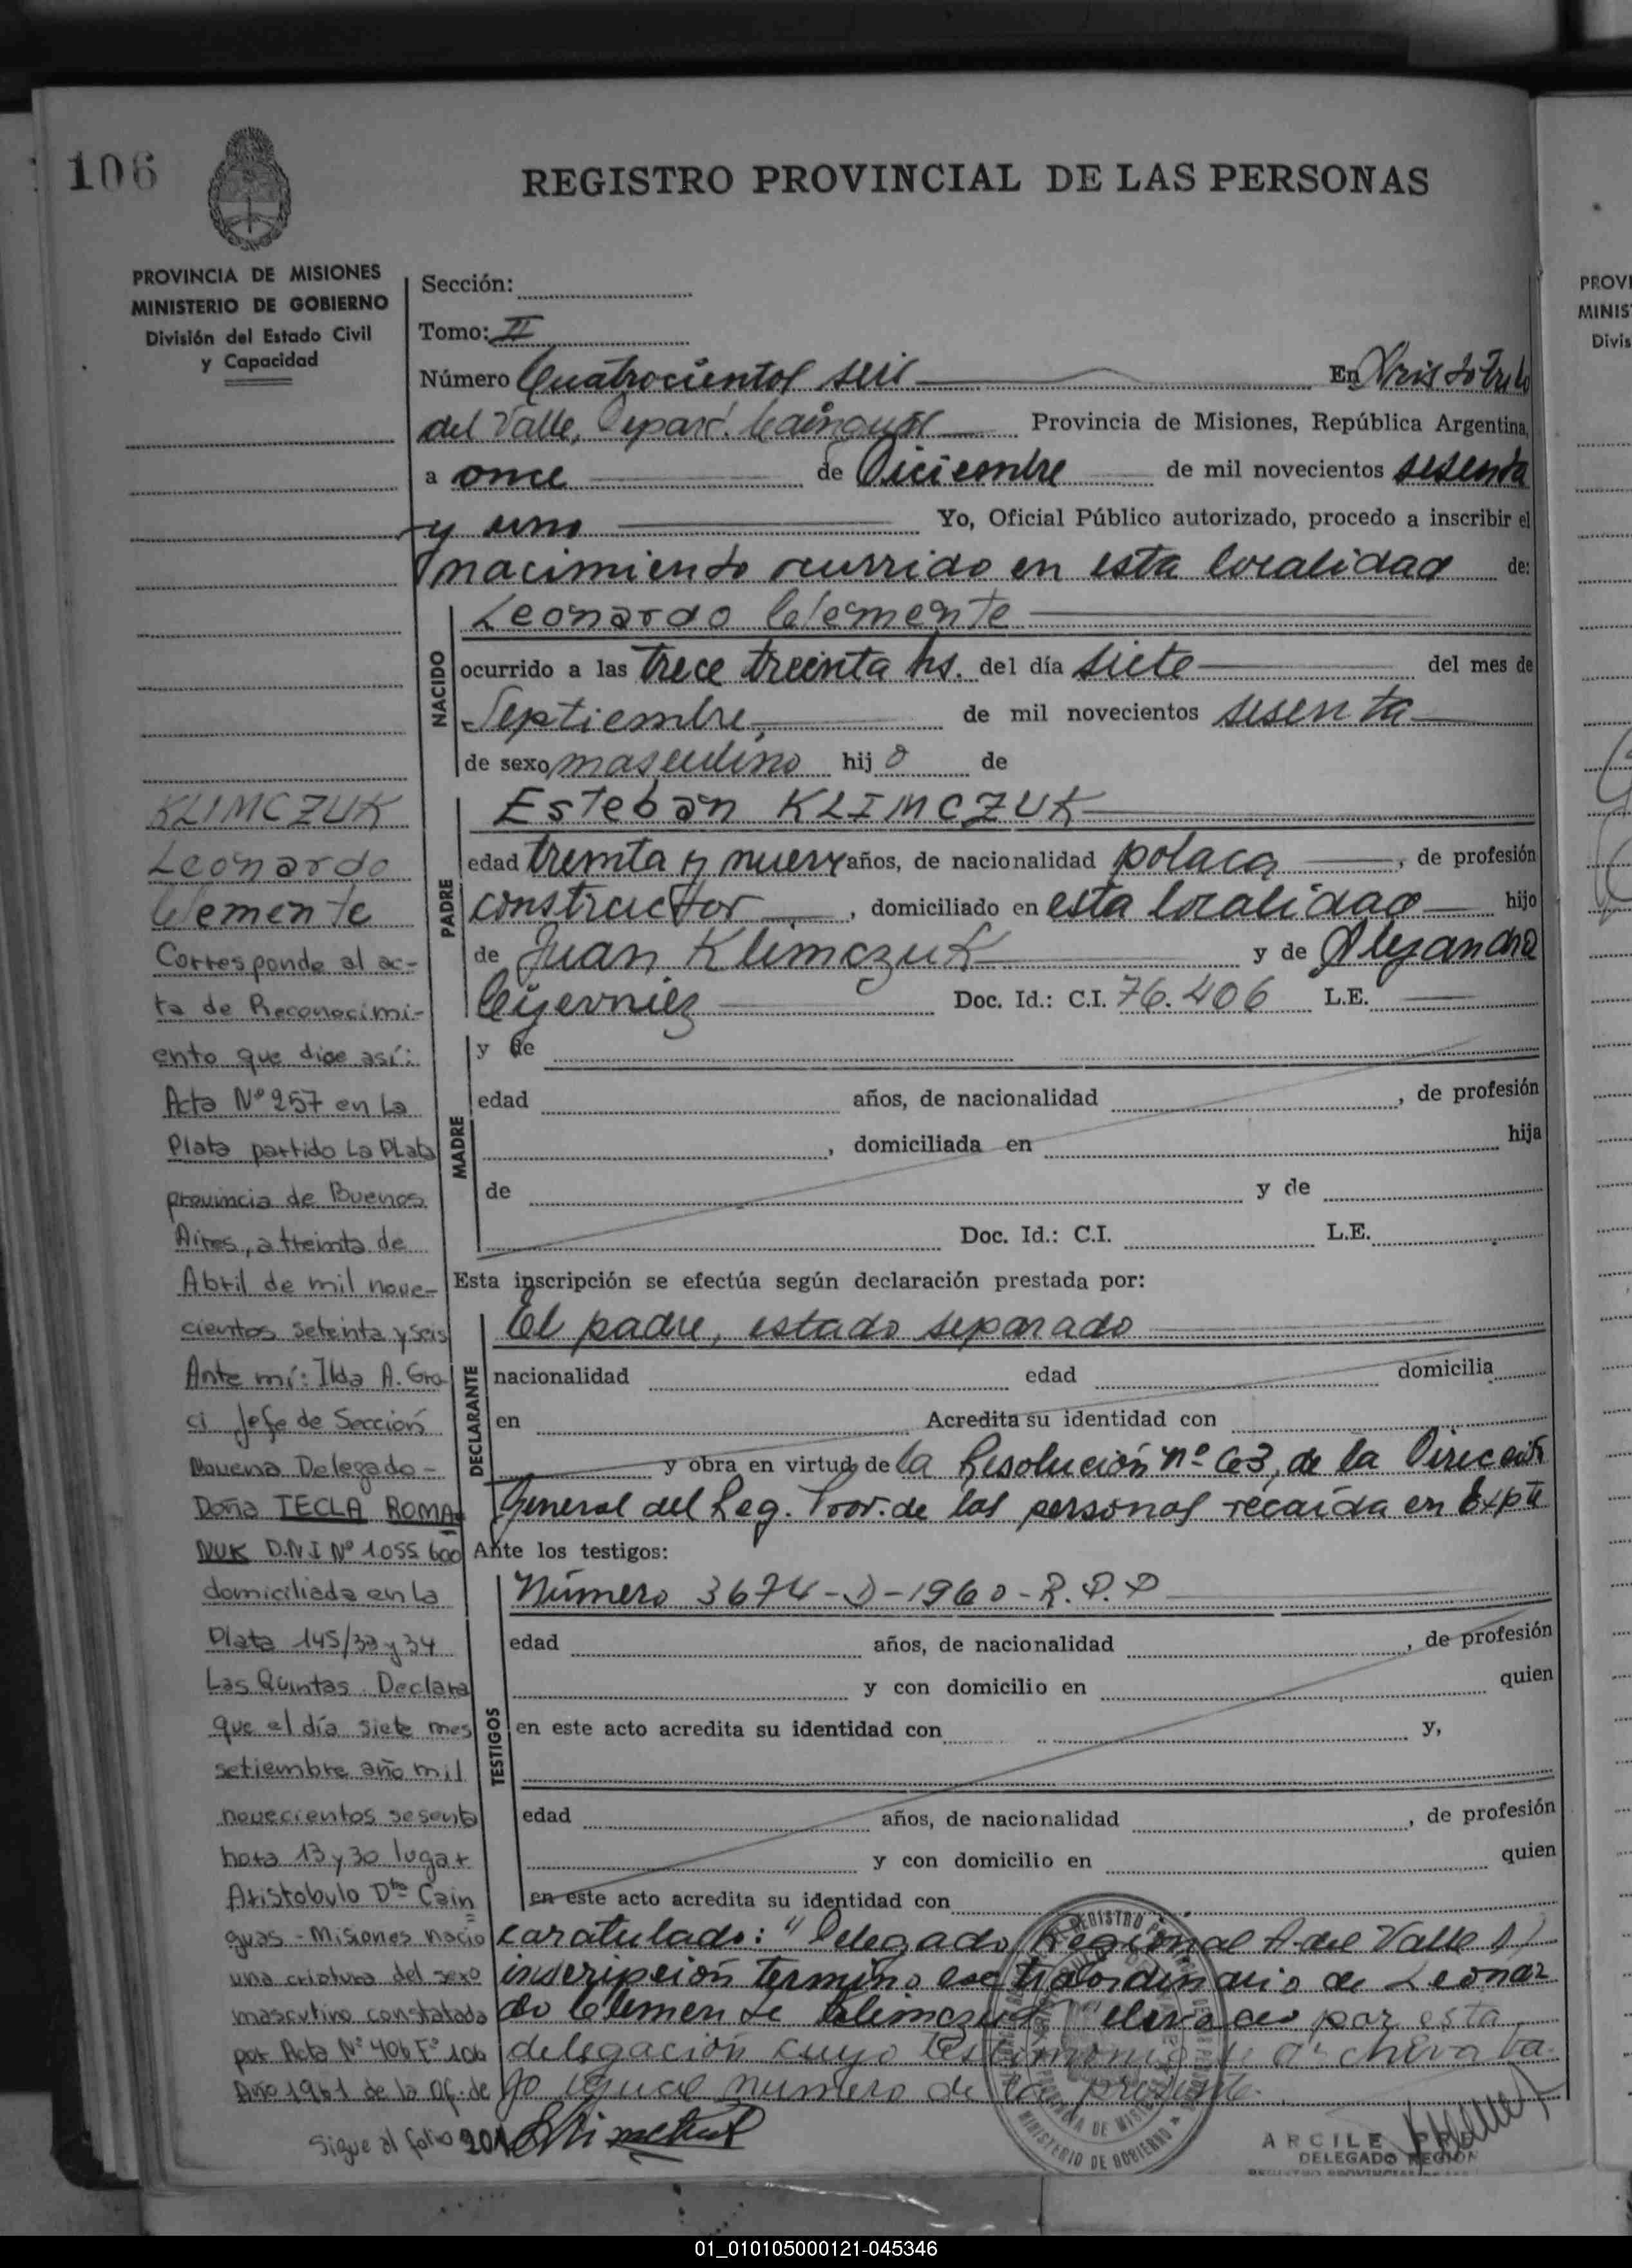 106
REGISTRO PROVINCIAL DE LAS PERSONAS
PROVINCIA DE MISIONES
MINISTERIO DE GOBIERNO
División del Estado Civil
y Capacidad
KLIMCZUK
Leonardo
Clemente
Corresponde al ac-
ta de Reconocimi-
ento que dice así:
Acta Nº 257 en La
Plata partido La Plata
provincia de Buenos
Aires, a treinta de
Abril de mil nove-
cientos setenta y seis
Ante mí: Ilda A. Gra
ci Jefe de Sección
Novena Delegado -
Doña TECLA ROMA-
NUK D.N.I Nº 1.055.600
domiciliada en La
Plata 145/33 y 34
Las Quintas. Declara
que el día siete mes
setiembre año mil
novecientos sesenta
hora 13 y 30 lugar
Aristobulo Dto Cain
guas - Misiones nacio
una criatura del sexo
masculino constatada
por Acta Nº 406 Fº 106
Año 1961 de la Of. de
Sigue al folio 201
Sección:
Tomo: II
Número Cuatrocientos seis En Aristobulo
del Valle, Depart. Cainguas Provincia de Misiones, República Argentina,
a once de Diciembre de mil novecientos sesenta
y uno Yo, Oficial Público autorizado, procedo a inscribir el
nacimiento ocurrido en esta localidad de:
NACIDO
Leonardo Clemente
ocurrido a las trece treinta hs. del día siete del mes de
Septiembre de mil novecientos sesenta
de sexo masculino hij o de
PADRE
Esteban KLIMCZUK
edad treinta y nueve años, de nacionalidad polaca, de profesión
constructor, domiciliado en esta localidad hijo
de Juan Klimczuk y de Alejandra
Doc. Id.: C.I. 76.406 L.E.
MADRE
y de
edad años, de nacionalidad , de profesión
, domiciliada en hija
de y de
Doc. Id.: C.I. L.E.
Esta inscripción se efectúa según declaración prestada por:
DECLARANTE
El padre, estado separado
nacionalidad edad domicilia
en Acredita su identidad con
y obra en virtud de la Resolución nº 63, de la Dirección
General del Reg. Prov. de las personas recaída en Expte
Ante los testigos:
TESTIGOS
Número 3674-D-1960-R.P.P
edad años, de nacionalidad , de profesión
y con domicilio en quien
en este acto acredita su identidad con y,
edad años, de nacionalidad , de profesión
y con domicilio en quien
en este acto acredita su identidad con
caratulado: "Delegado Regional A. del Valle S/
inscripción termino extraordinario de Leonar
do Clemente Klimczuk" elevado por esta
delegación cuyo testimonio se archiva ba
jo igual numero de la presente.
REGISTRO
MINISTERIO DE GOBIERNO
ARCILE
DELEGADO REGION
PROVI
MINIS
Divis
01_010105000121-045346